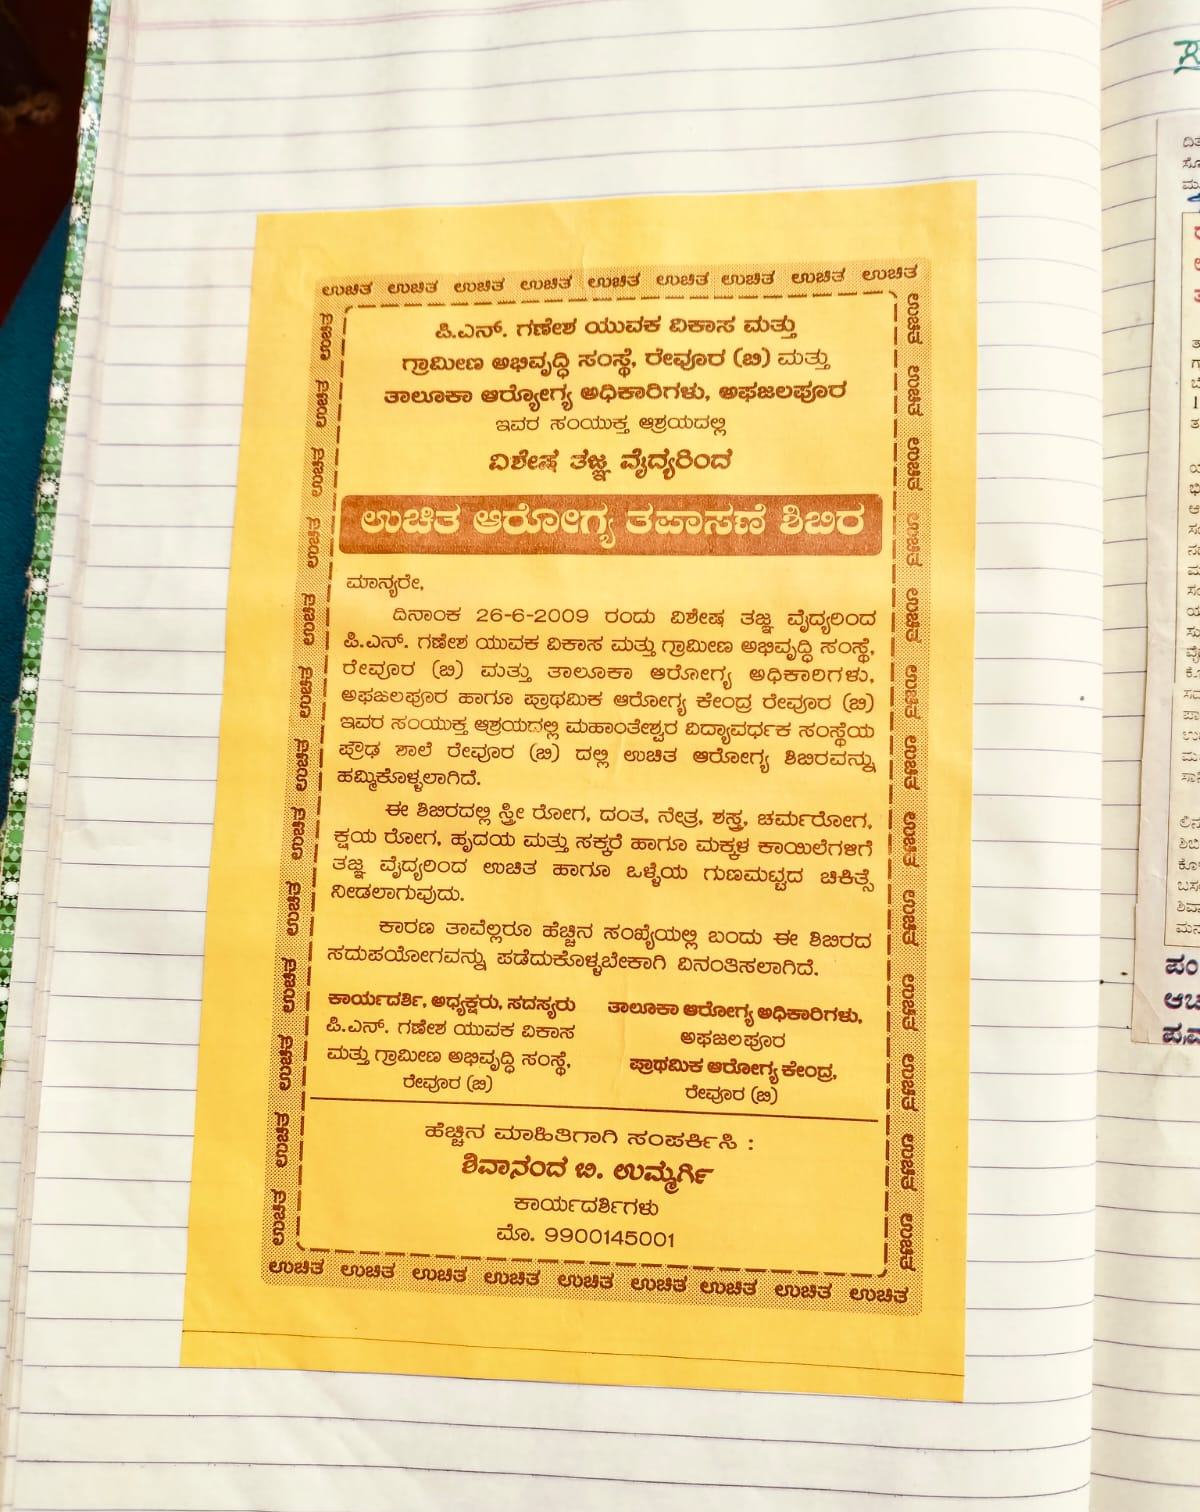 ಉಚಿತ ಉಚಿತ ಉಚಿತ ಉಚಿತ ಉಚಿತ ಉಚಿತ ಉಚಿತ ಉಚಿತ ಉಚಿತ
ಪಿ.ಎನ್. ಗಣೇಶ ಯುವಕ ವಿಕಾಸ ಮತ್ತು
ಗ್ರಾಮೀಣ ಅಭಿವೃದ್ಧಿ ಸಂಸ್ಥೆ, ರೇವೂರ (ಬಿ) ಮತ್ತು
ತಾಲೂಕಾ ಆರ‍್ಯೋಗ್ಯ ಅಧಿಕಾರಿಗಳು, ಅಫಜಲಪೂರ
ಇವರ ಸಂಯುಕ್ತ ಆಶ್ರಯದಲ್ಲಿ
ವಿಶೇಷ ತಜ್ಞ ವೈದ್ಯರಿಂದ
ಉಚಿತ ಆರೋಗ್ಯ ತಪಾಸಣೆ ಶಿಬಿರ
ಮಾನ್ಯರೇ,
ದಿನಾಂಕ 26-6-2009 ರಂದು ವಿಶೇಷ ತಜ್ಞ ವೈದ್ಯರಿಂದ
ಪಿ.ಎನ್. ಗಣೇಶ ಯುವಕ ವಿಕಾಸ ಮತ್ತು ಗ್ರಾಮೀಣ ಅಭಿವೃದ್ಧಿ ಸಂಸ್ಥೆ,
ರೇವೂರ (ಬಿ) ಮತ್ತು ತಾಲೂಕಾ ಆರೋಗ್ಯ ಅಧಿಕಾರಿಗಳು,
ಅಫಜಲಪೂರ ಹಾಗೂ ಪ್ರಾಥಮಿಕ ಆರೋಗ್ಯ ಕೇಂದ್ರ ರೇವೂರ (ಬಿ)
ಇವರ ಸಂಯುಕ್ತ ಆಶ್ರಯದಲ್ಲಿ ಮಹಾಂತೇಶ್ವರ ವಿದ್ಯಾವರ್ಧಕ ಸಂಸ್ಥೆಯ
ಪ್ರೌಢ ಶಾಲೆ ರೇವೂರ (ಬಿ) ದಲ್ಲಿ ಉಚಿತ ಆರೋಗ್ಯ ಶಿಬಿರವನ್ನು
ಹಮ್ಮಿಕೊಳ್ಳಲಾಗಿದೆ.
ಈ ಶಿಬಿರದಲ್ಲಿ ಸ್ತ್ರೀ ರೋಗ, ದಂತ, ನೇತ್ರ, ಶಸ್ತ್ರ, ಚರ್ಮರೋಗ,
ಕ್ಷಯ ರೋಗ, ಹೃದಯ ಮತ್ತು ಸಕ್ಕರೆ ಹಾಗೂ ಮಕ್ಕಳ ಕಾಯಿಲೆಗಳಿಗೆ
ತಜ್ಞ ವೈದ್ಯರಿಂದ ಉಚಿತ ಹಾಗೂ ಒಳ್ಳೆಯ ಗುಣಮಟ್ಟದ ಚಿಕಿತ್ಸೆ
ನೀಡಲಾಗುವುದು.
ಕಾರಣ ತಾವೆಲ್ಲರೂ ಹೆಚ್ಚಿನ ಸಂಖ್ಯೆಯಲ್ಲಿ ಬಂದು ಈ ಶಿಬಿರದ
ಸದುಪಯೋಗವನ್ನು ಪಡೆದುಕೊಳ್ಳಬೇಕಾಗಿ ವಿನಂತಿಸಲಾಗಿದೆ.
ಕಾರ್ಯದರ್ಶಿ, ಅಧ್ಯಕ್ಷರು, ಸದಸ್ಯರು
ಪಿ.ಎನ್. ಗಣೇಶ ಯುವಕ ವಿಕಾಸ
ಮತ್ತು ಗ್ರಾಮೀಣ ಅಭಿವೃದ್ಧಿ ಸಂಸ್ಥೆ,
ರೇವೂರ (ಬಿ)
ತಾಲೂಕಾ ಆರೋಗ್ಯ ಅಧಿಕಾರಿಗಳು,
ಅಫಜಲಪೂರ
ಪ್ರಾಥಮಿಕ ಆರೋಗ್ಯ ಕೇಂದ್ರ,
ರೇವೂರ (ಬಿ)
ಹೆಚ್ಚಿನ ಮಾಹಿತಿಗಾಗಿ ಸಂಪರ್ಕಿಸಿ :
ಶಿವಾನಂದ ಬಿ. ಉಮ್ಮರ್ಗಿ
ಕಾರ್ಯದರ್ಶಿಗಳು
ಮೊ. 9900145001
ಉಚಿತ ಉಚಿತ ಉಚಿತ ಉಚಿತ ಉಚಿತ ಉಚಿತ ಉಚಿತ ಉಚಿತ ಉಚಿತ